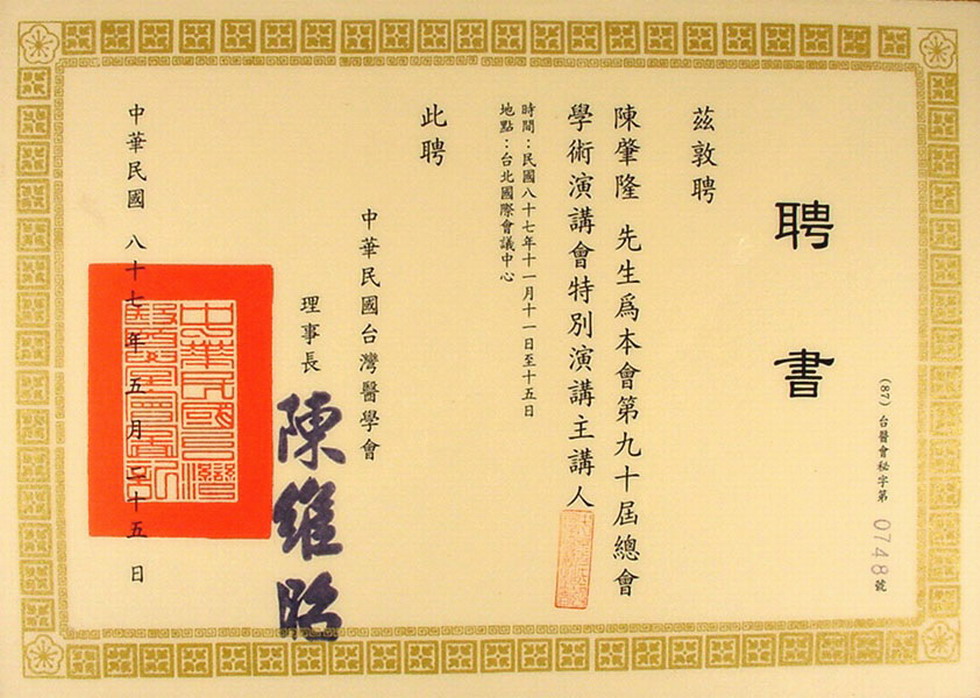 聘書
(87) 台醫會秘字第 0748 號
茲敦聘
陳肇隆 先生爲本會第九十屆總會
學術演講會特別演講主講人
時間：民國八十七年十一月十一日至十五日
地點：台北國際會議中心
此聘
中華民國台灣醫學會
理事長 陳維昭
中華民國 八十七年五月二十五日